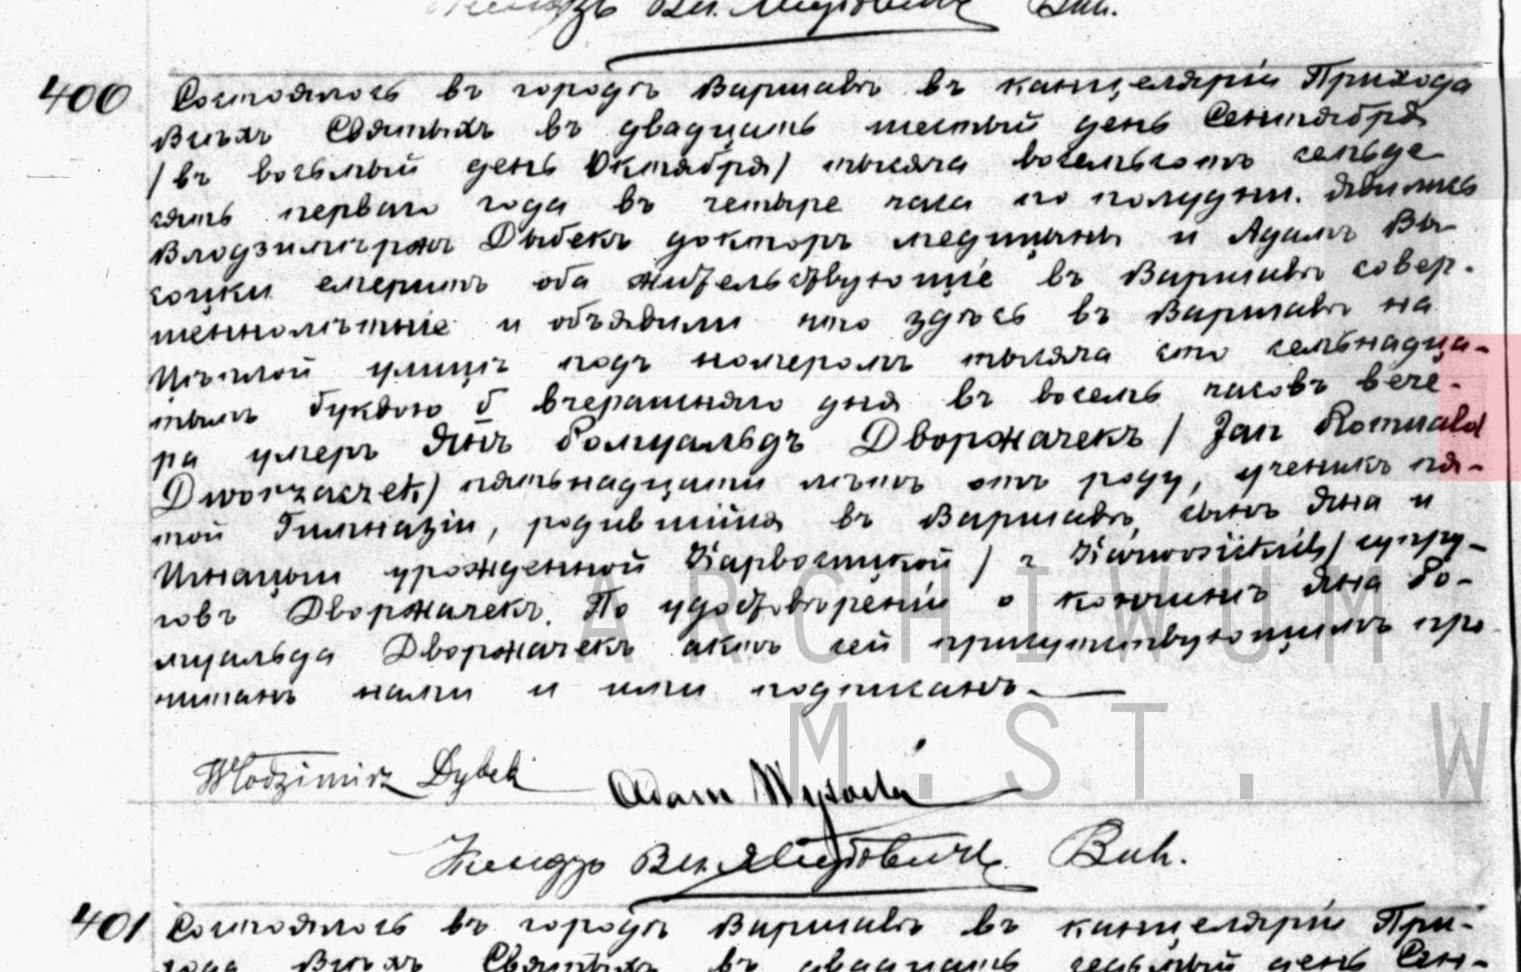 Ксендзъ Вик.
400
Состоялось въ городѣ Варшавѣ въ канцеляріи Прихода
Всѣхъ Святыхъ въ двадцать шестый день Сентября
/въ восьмый день Октября/ тысяча восемьсотъ семьде
сятъ перваго года въ четыре часа по полудни. Явились
Влодзимѣржъ Дыбекъ докторъ медицыны и Адамъ Вы
соцки емеритъ оба жительствующіе въ Варшавѣ совер-
шеннолѣтніе и объявили что здѣсь въ Варшавѣ на
улицѣ подъ номеромъ тысяча сто семьнадца-
тымъ буквою б вчерашняго дня въ восемь часовъ вече-
ра умеръ Янъ Ромуальдъ Дворжачекъ / Jan Romuald
Dworzaczek/ пятьнадцати лѣтъ отъ роду, ученикъ пя-
той Гимназіи, родившійся въ Варшавѣ, сынъ Яна и
Игнацыи урожденной Карвосицкой / z Karwosickich/ супру-
говъ Дворжачекъ. По удостовѣреніи о кончинѣ Яна Ро-
муальда Дворжачекъ актъ сей присутствующимъ про
читанъ нами и ими подписанъ.
Włodzimirz Dybek Adam Wysocki
Ксендзъ Вик.
401
Состоялось въ городѣ Варшавѣ въ канцеляріи При-
хода Всѣхъ Святыхъ въ двадцать седьмый день Сен-
ARCHIWUM
M.ST. W